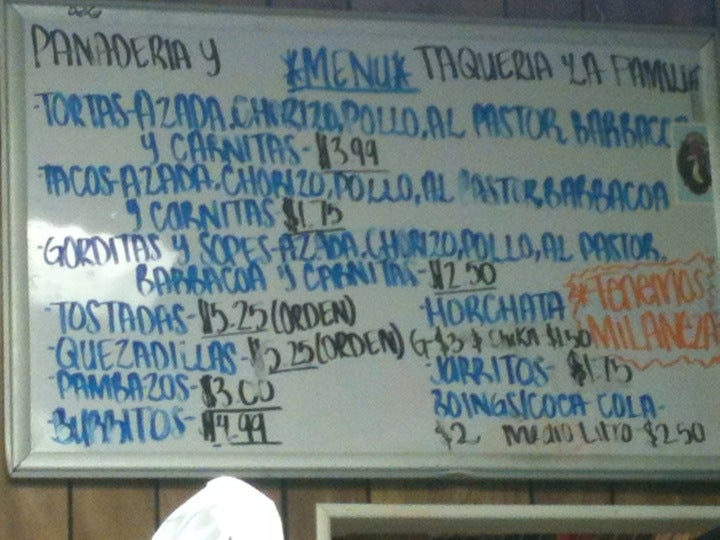 PANADERIA Y *MENU* TAQUERIA "LA FAMILIA
-TORTAS-AZADA, CHORIZO, POLLO, AL PASTOR BARBACO
Y CARNITAS-$3.99
-TACOS-AZADA, CHORIZO, POLLO, AL PASTOR, BARBACOA
Y CARNITAS-$1.75
-GORDITAS Y SOPES-AZADA, CHORIZO, POLLO, AL PASTOR,
BARBACOA Y CARNITAS-$2.50
-TOSTADAS-$5.25 (ORDEN)
-QUEZADILLAS-$5.25 (ORDEN)
-PAMBAZOS-$3.00
-BURRITOS-$4.99
-HORCHATA
G-$3 $ CHIKA $1.50
-JARRITOS-$1.75
BOINGS/COCA-COLA-
$2 MEDIO LITRO-$2.50
*Tenemos
MILANEZA